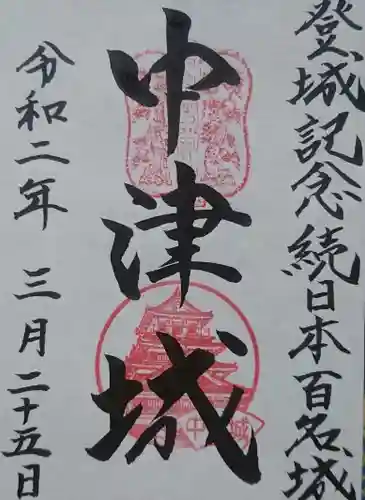 登城記念 続日本百名城
中津城
令和二年 三月二十五日